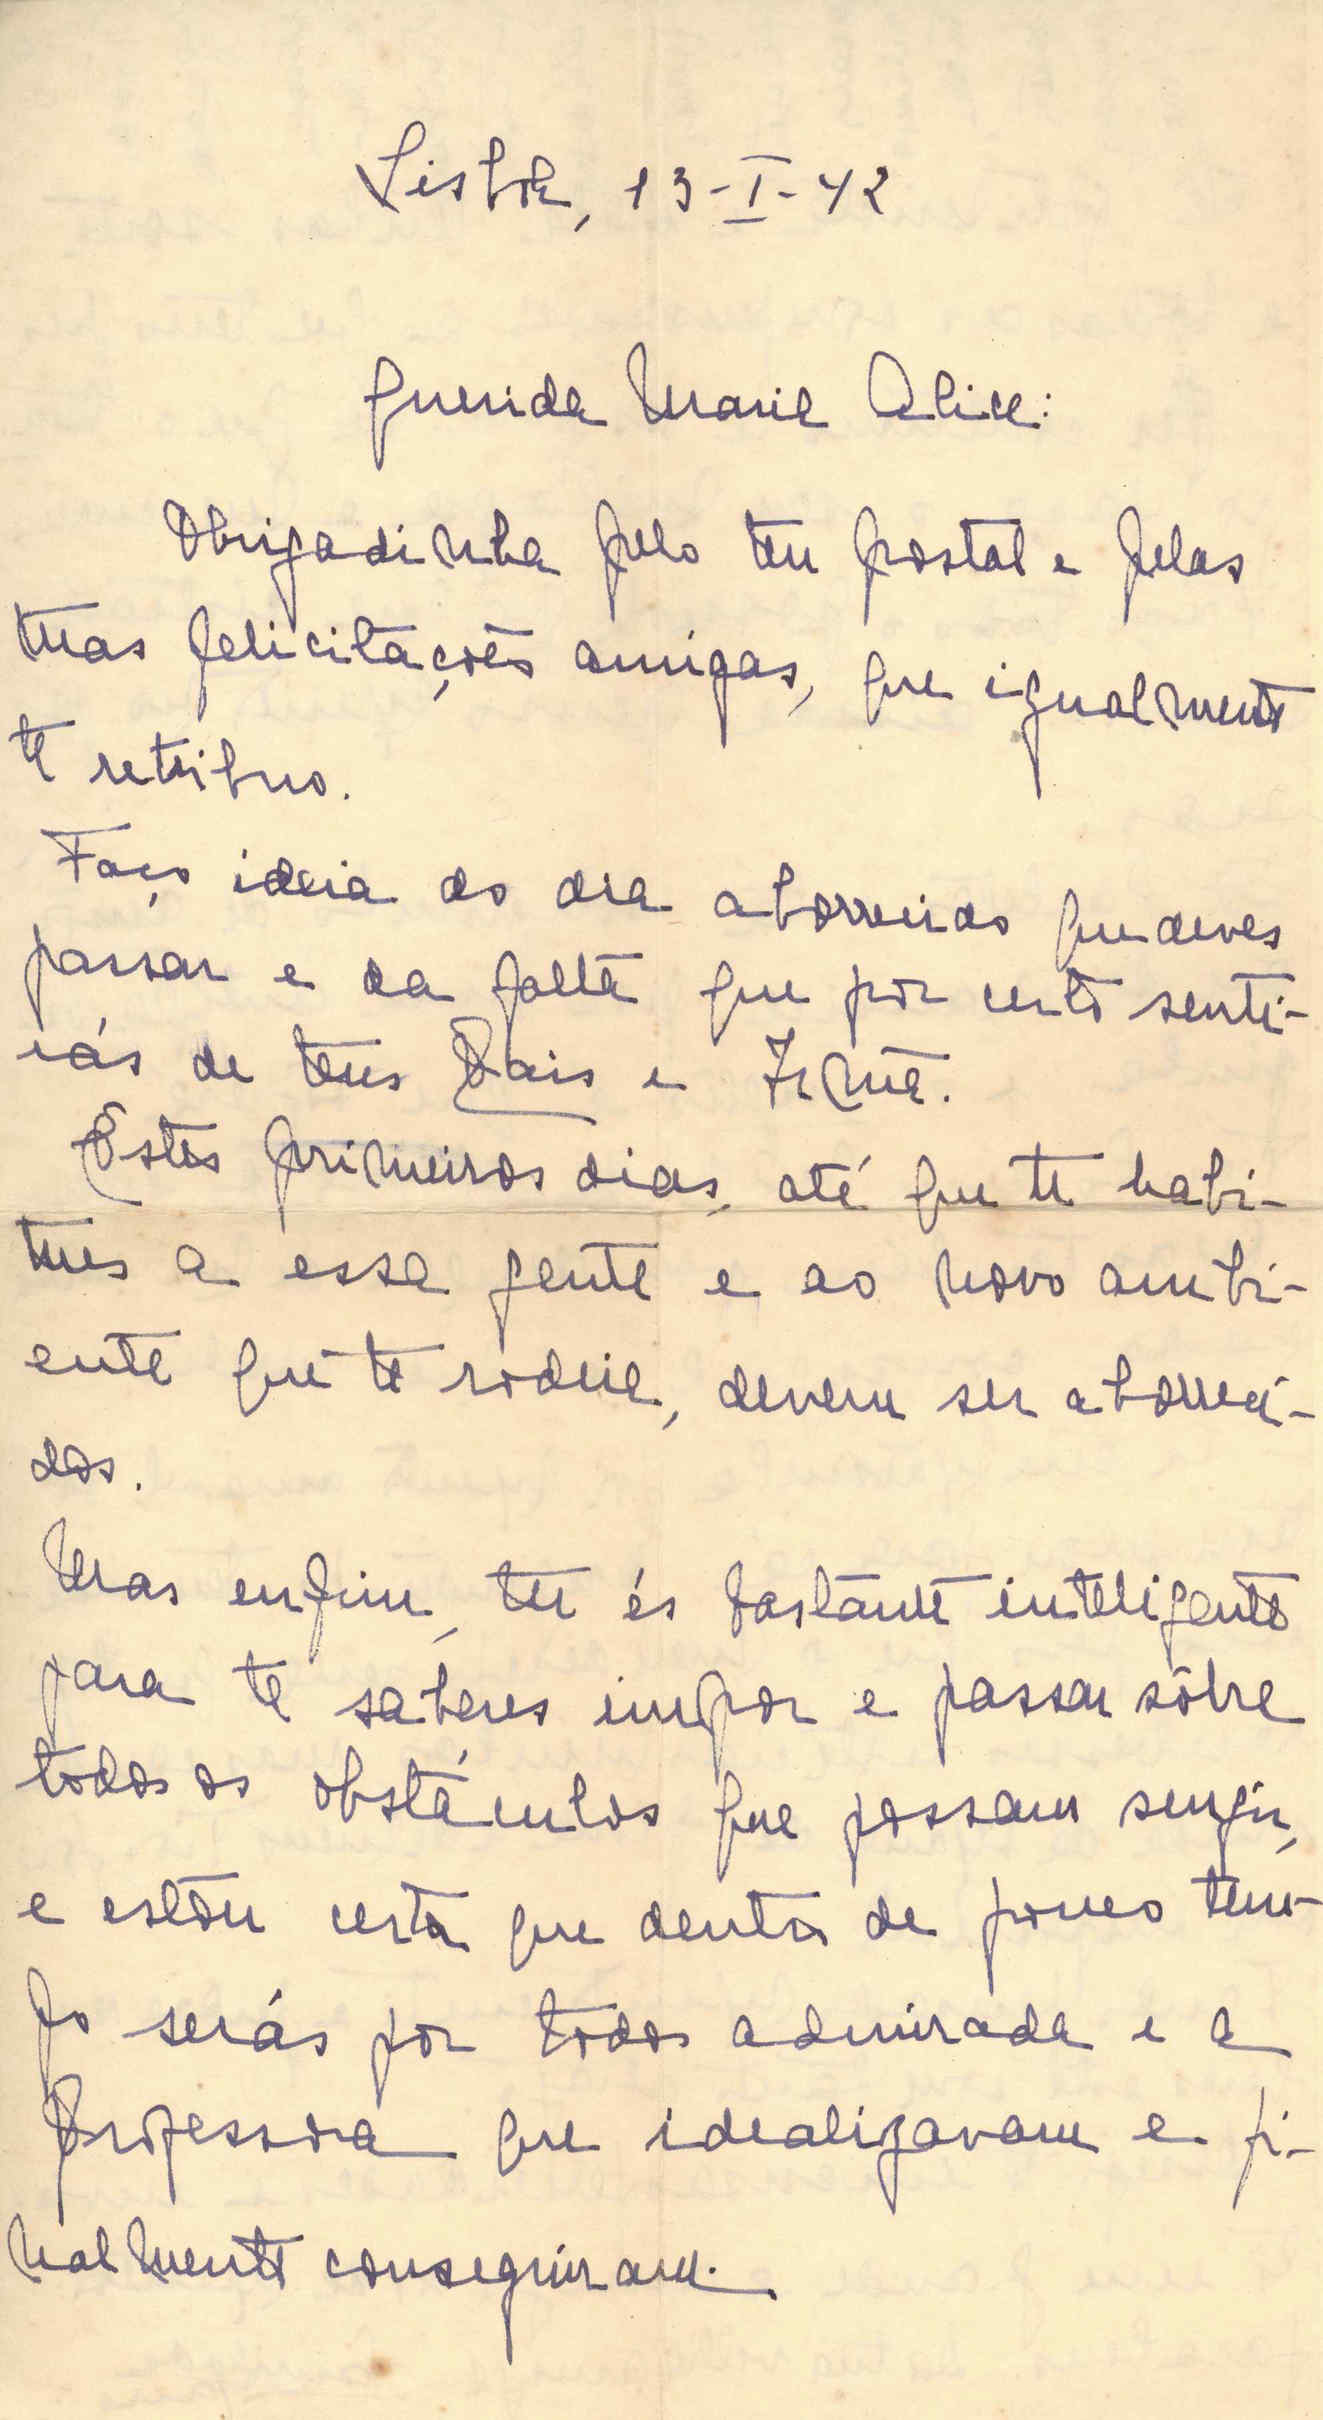 Lisboa, 13-I-42
Querida Maria Alice:
Obrigadinha pelo teu postal e pelas
tuas felicitações amigas, que igualmente
te retribuo.
Faço ideia do dia aborrecido que deves
passar e da falta que por certo senti-
rás de teus Pais e Irmã.
Estes primeiros dias, até que te habi-
tues a essa gente e ao novo ambi-
ente que te rodeia, devem ser aborreci-
dos.
Mas enfim, tu és bastante inteligente
para te saberes impor e passar sôbre
todos os obstáculos que possam surgir,
e estou certa que dentro de pouco tem-
po serás por todos admirada e a
Professora que idealizavam e fi-
nalmente conseguiram.